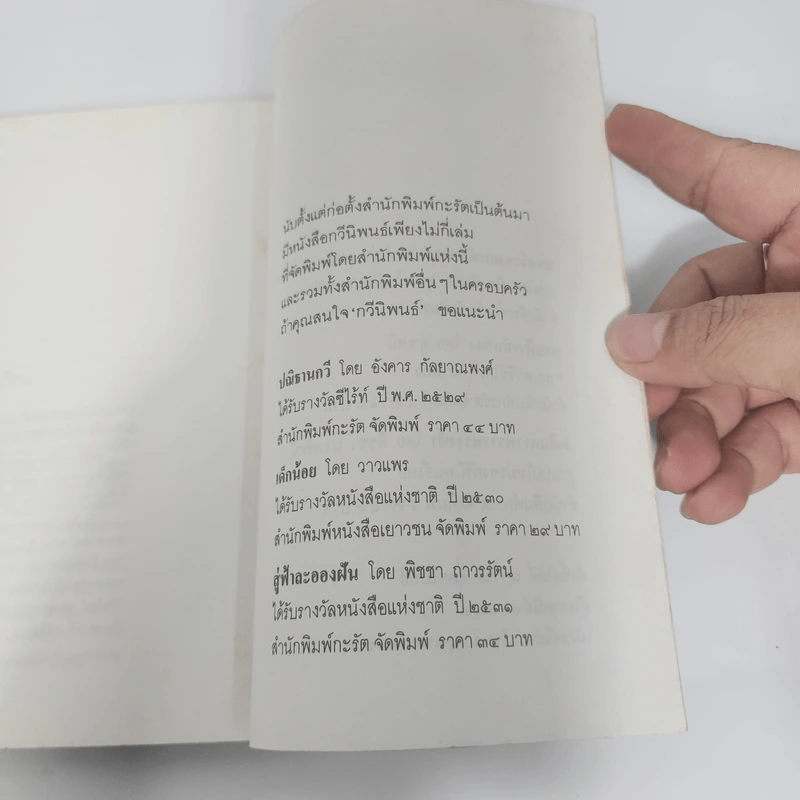 นับตั้งแต่ก่อตั้งสำนักพิมพ์กะรัตเป็นต้นมา
มีหนังสือกวีนิพนธ์เพียงไม่กี่เล่ม
ที่จัดพิมพ์โดยสำนักพิมพ์แห่งนี้
และรวมทั้งสำนักพิมพ์อื่นๆในครอบครัว
ถ้าคุณสนใจ ‘กวีนิพนธ์’ ขอแนะนำ
ปณิธานกวี โดย อังคาร กัลยาณพงศ์
ได้รับรางวัลซีไร้ท์ ปี พ.ศ. ๒๕๒๙
สำนักพิมพ์กะรัต จัดพิมพ์ ราคา ๔๔ บาท
เด็กน้อย โดย วาวแพร
ได้รับรางวัลหนังสือแห่งชาติ ปี ๒๕๓๐
สำนักพิมพ์หนังสือเยาวชน จัดพิมพ์ ราคา ๒๙ บาท
สู่ฟ้าละอองฝัน โดย พิชชา ถาวรรัตน์
ได้รับรางวัลหนังสือแห่งชาติ ปี ๒๕๓๑
สำนักพิมพ์กะรัต จัดพิมพ์ ราคา ๓๔ บาท